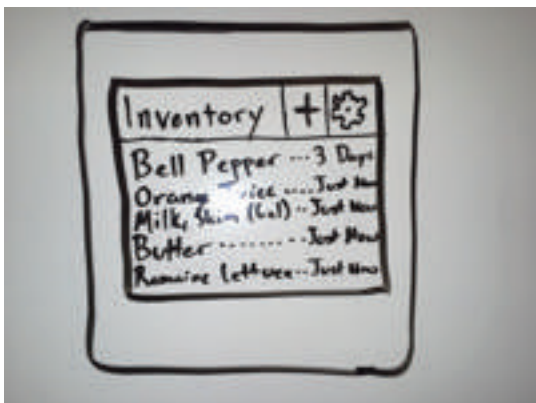 Inventory +
Bell Pepper ... 3 Days
Orange Juice ..... Just Now
Milk, Skim (Gal) .. Just Now
Butter ........ Just Now
Romaine Lettuce .. Just Now